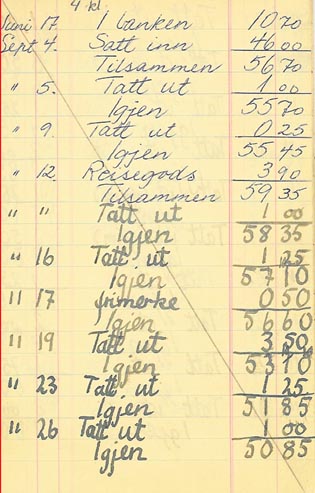 4 kl.
Juni 17. I banken 10 70
Sept 4. Satt inn 46 00
Tilsammen 56 70
" 5. Tatt ut 1 00
Igjen 55 70
" 9. Tatt ut 0 25
Igjen 55 45
" 12. Reisegods 3 90
Tilsammen 59 35
" " Tatt ut 1 00
Igjen 58 35
" 16 Tatt ut 1 25
Igjen 57 10
" 17 frimerke 0 50
Igjen 56 60
" 19 Tatt ut 3 50
Igjen 53 10
" 23 Tatt ut 1 25
Igjen 51 85
" 26 Tatt ut 1 00
Igjen 50 85